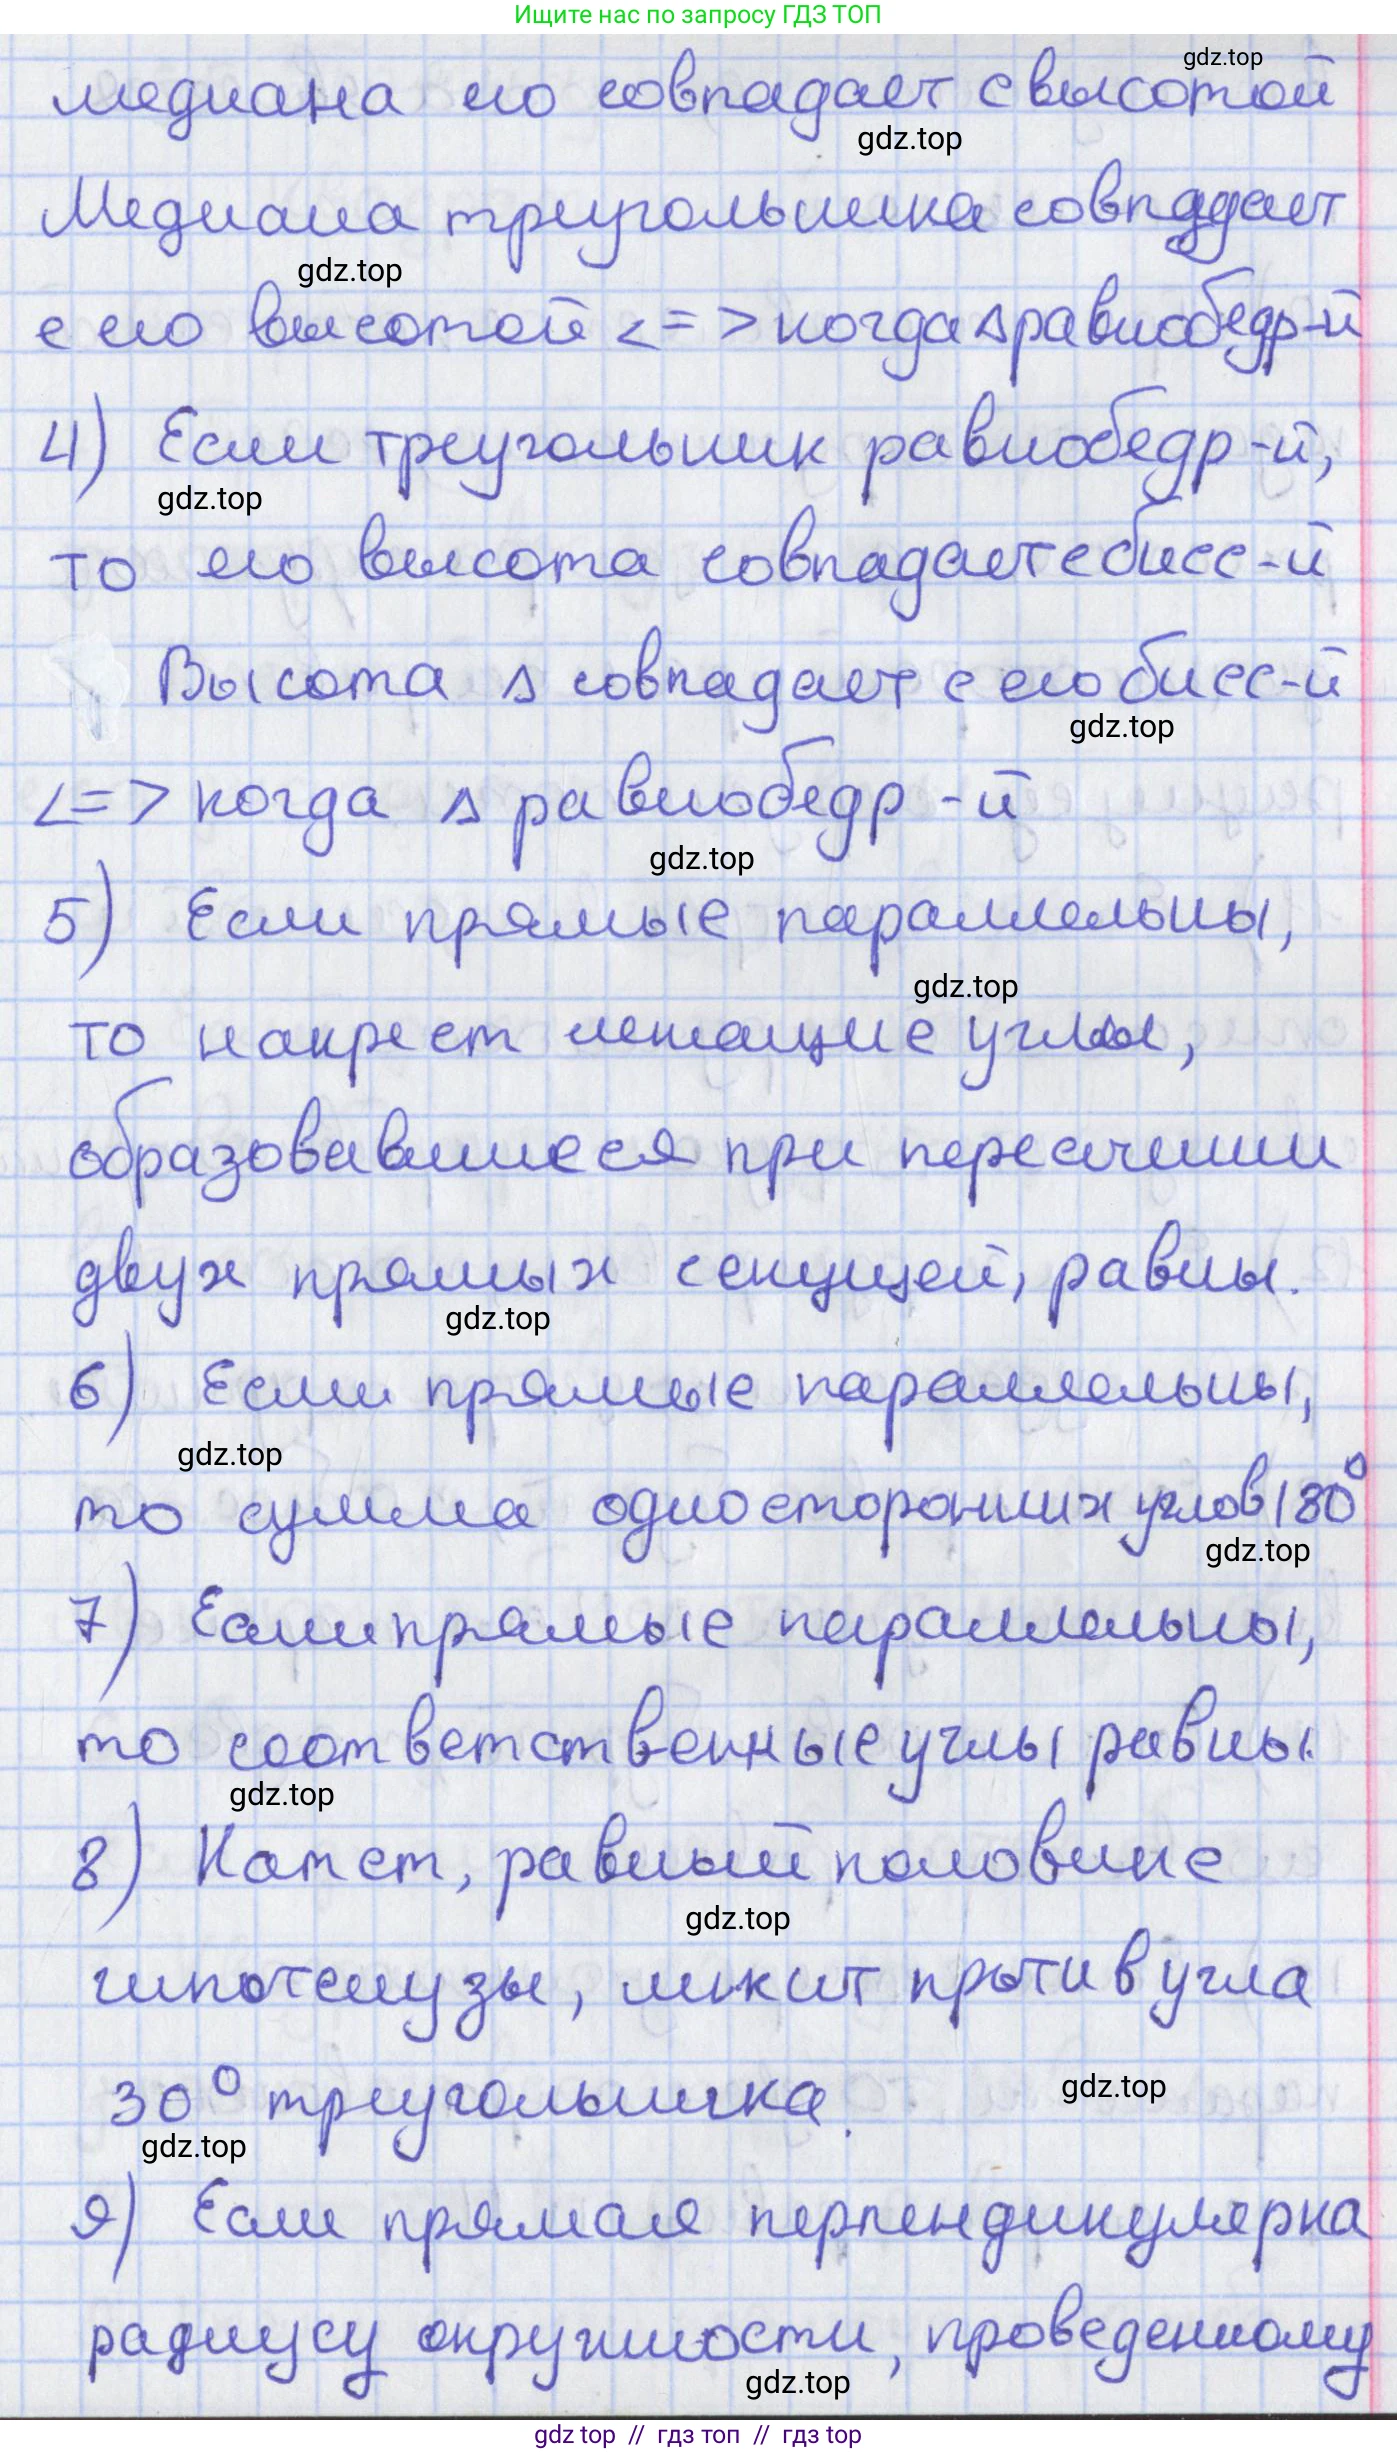 Ищите нас по запросу ГДЗ ТОП
gdz.top
медиана его совпадает с высотой
gdz.top
Медиана треугольника совпадает
gdz.top
с его высотой <=> когда △ равнобедр-й
4) Если треугольник равнобедр-й,
gdz.top
то его высота совпадает с бисс-й
Высота △ совпадает с его бисс-й
gdz.top
<=> когда △ равнобедр-й
gdz.top
5) Если прямые параллельны,
gdz.top
то накрест лежащие углы,
образовавшиеся при пересечении
двух прямых секущей, равны.
gdz.top
6) Если прямые параллельны,
gdz.top
то сумма односторонних углов 180°
gdz.top
7) Если прямые параллельны,
то соответственные углы равны.
gdz.top
8) Катет, равный половине
gdz.top
гипотенузы, лежит против угла
30° треугольника.
gdz.top
gdz.top
9) Если прямая перпендикулярна
радиусу окружности, проведенному
gdz.top
gdz top // гдз топ // гдз top